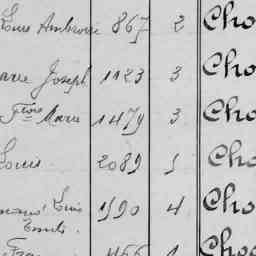 Louis Ambroise 867 2 Cho
Marie Joseph 1123 3 Cho
Flore Marie 1479 3 Cho
Louis 2089 1 Cho
Louis 1990 4 Cho
466 1 Choc